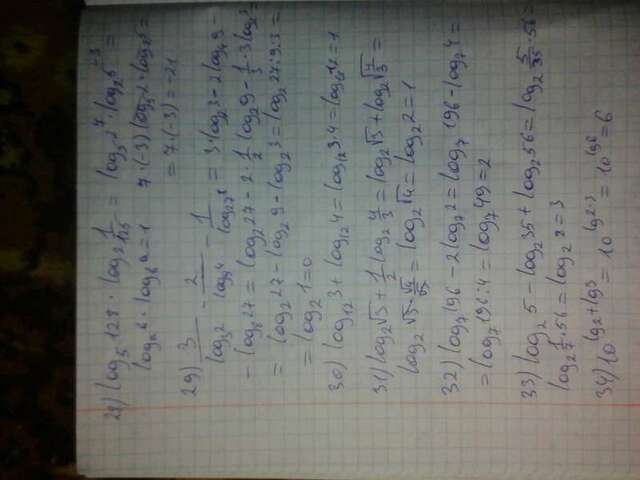 28) log₅128 · log₂ 1/125 = log₅2⁷ · log₂5⁻³ =
logₐb · log_b a = 1 7·(-3) log₅2 · log₂5 =
= 7·(-3) = -21
29) 3/log₃2 - 2/log₉4 - 1/log₂₇8 = 3·log₂3 - 2log₄9 -
- log₈27 = log₂27 - 2·1/2 log₂9 - 1/3·3log₂3 =
= log₂27 - log₂9 - log₂3 = log₂27:9:3 =
= log₂1 = 0
30) log₁₂3 + log₁₂4 = log₁₂3·4 = log₁₂12 = 1
31) log₂√3 + 1/2 log₂ 4/3 = log₂√3 + log₂√(4/3) =
log₂ √3 · √4/√3 = log₂√4 = log₂2 = 1
32) log₇196 - 2log₇2 = log₇196 - log₇4 =
= log₇196:4 = log₇49 = 2
33) log₂5 - log₂35 + log₂56 = log₂ 5/35 · 56 =
log₂ 1/7 · 56 = log₂8 = 3
34) 10^(lg2 + lg3) = 10^(lg2·3) = 10^(lg6) = 6